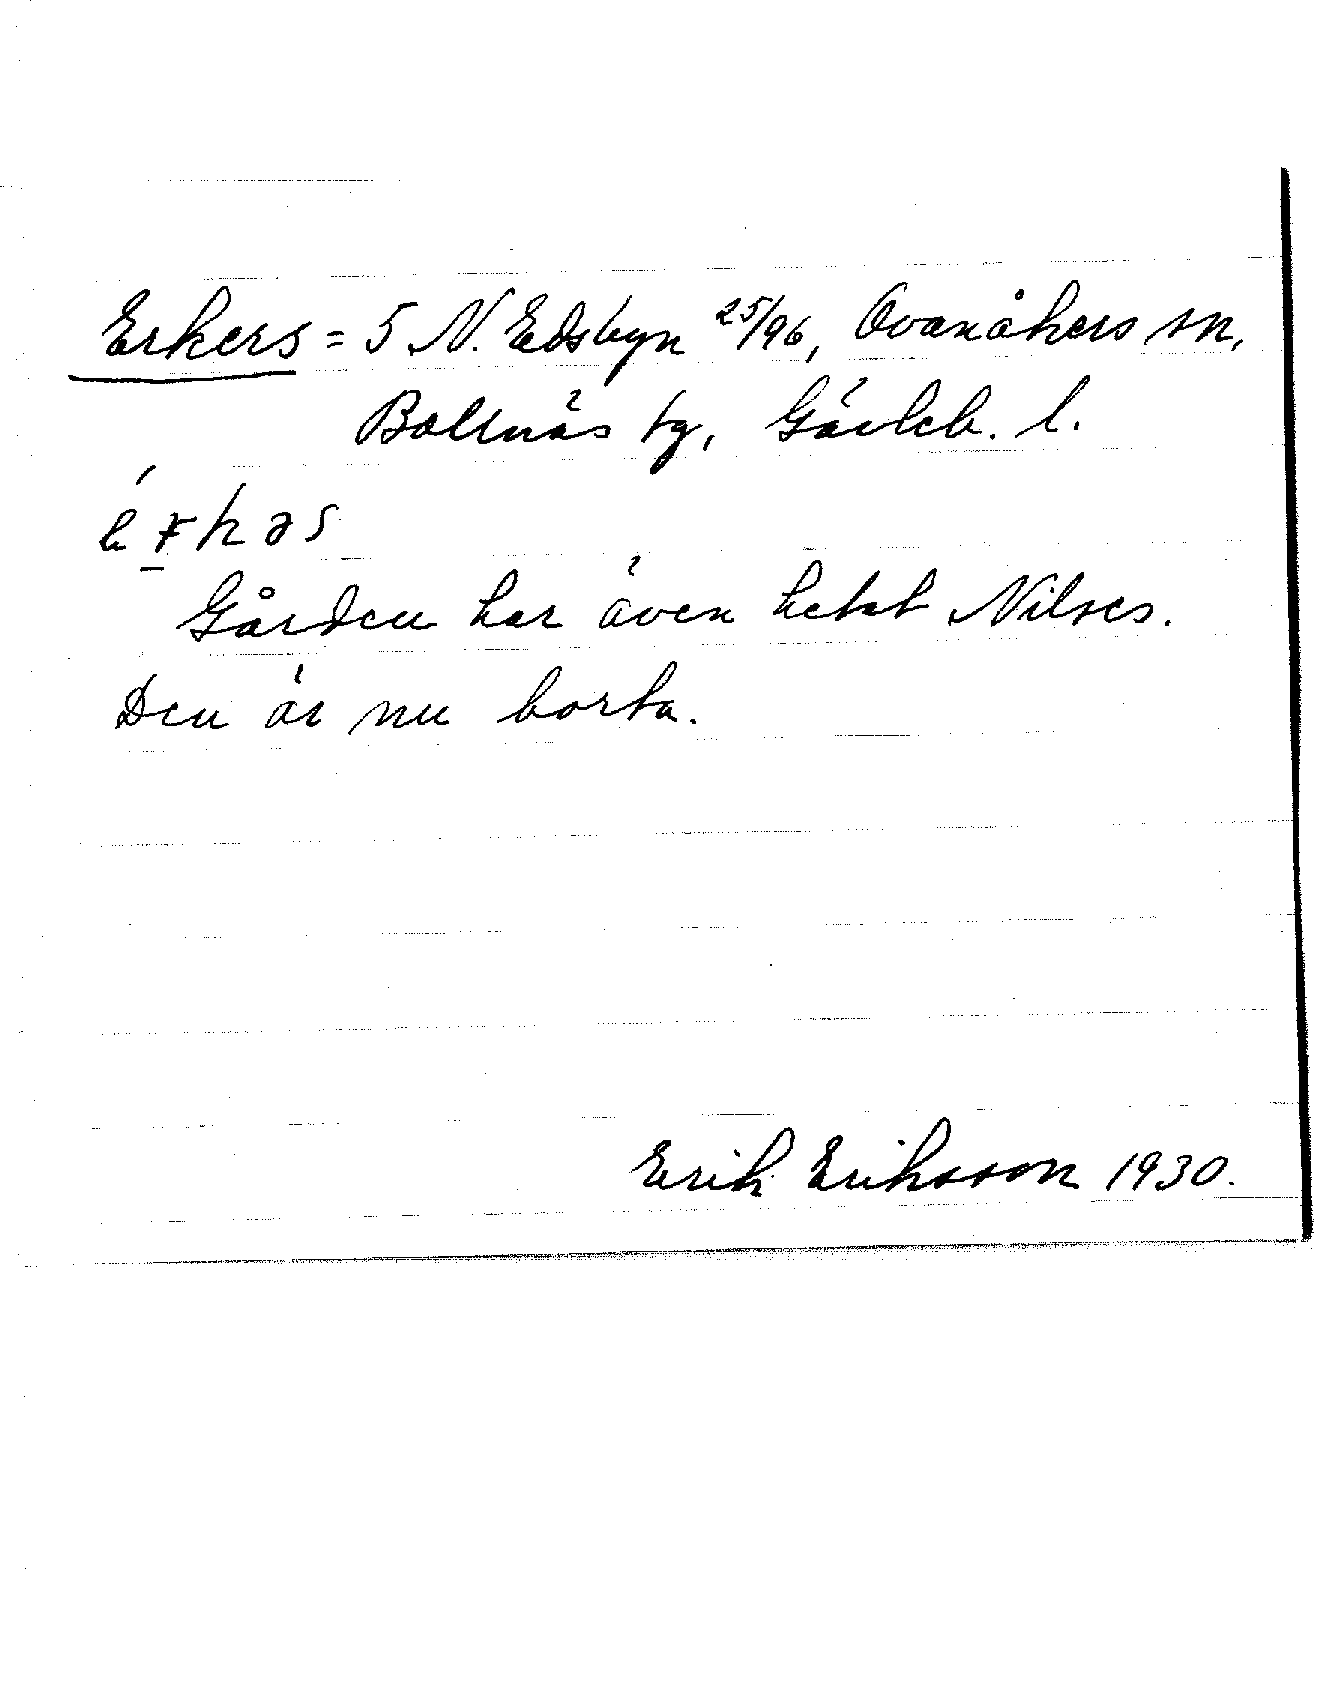 Erkers = 5 N. Edsbyn 25/96, Ovanåkers sn,
Bollnäs tg, Gävleb. l.
érkəs
Gården har även hetat Nilses.
Den är nu borta.
Erik Eriksson 1930.